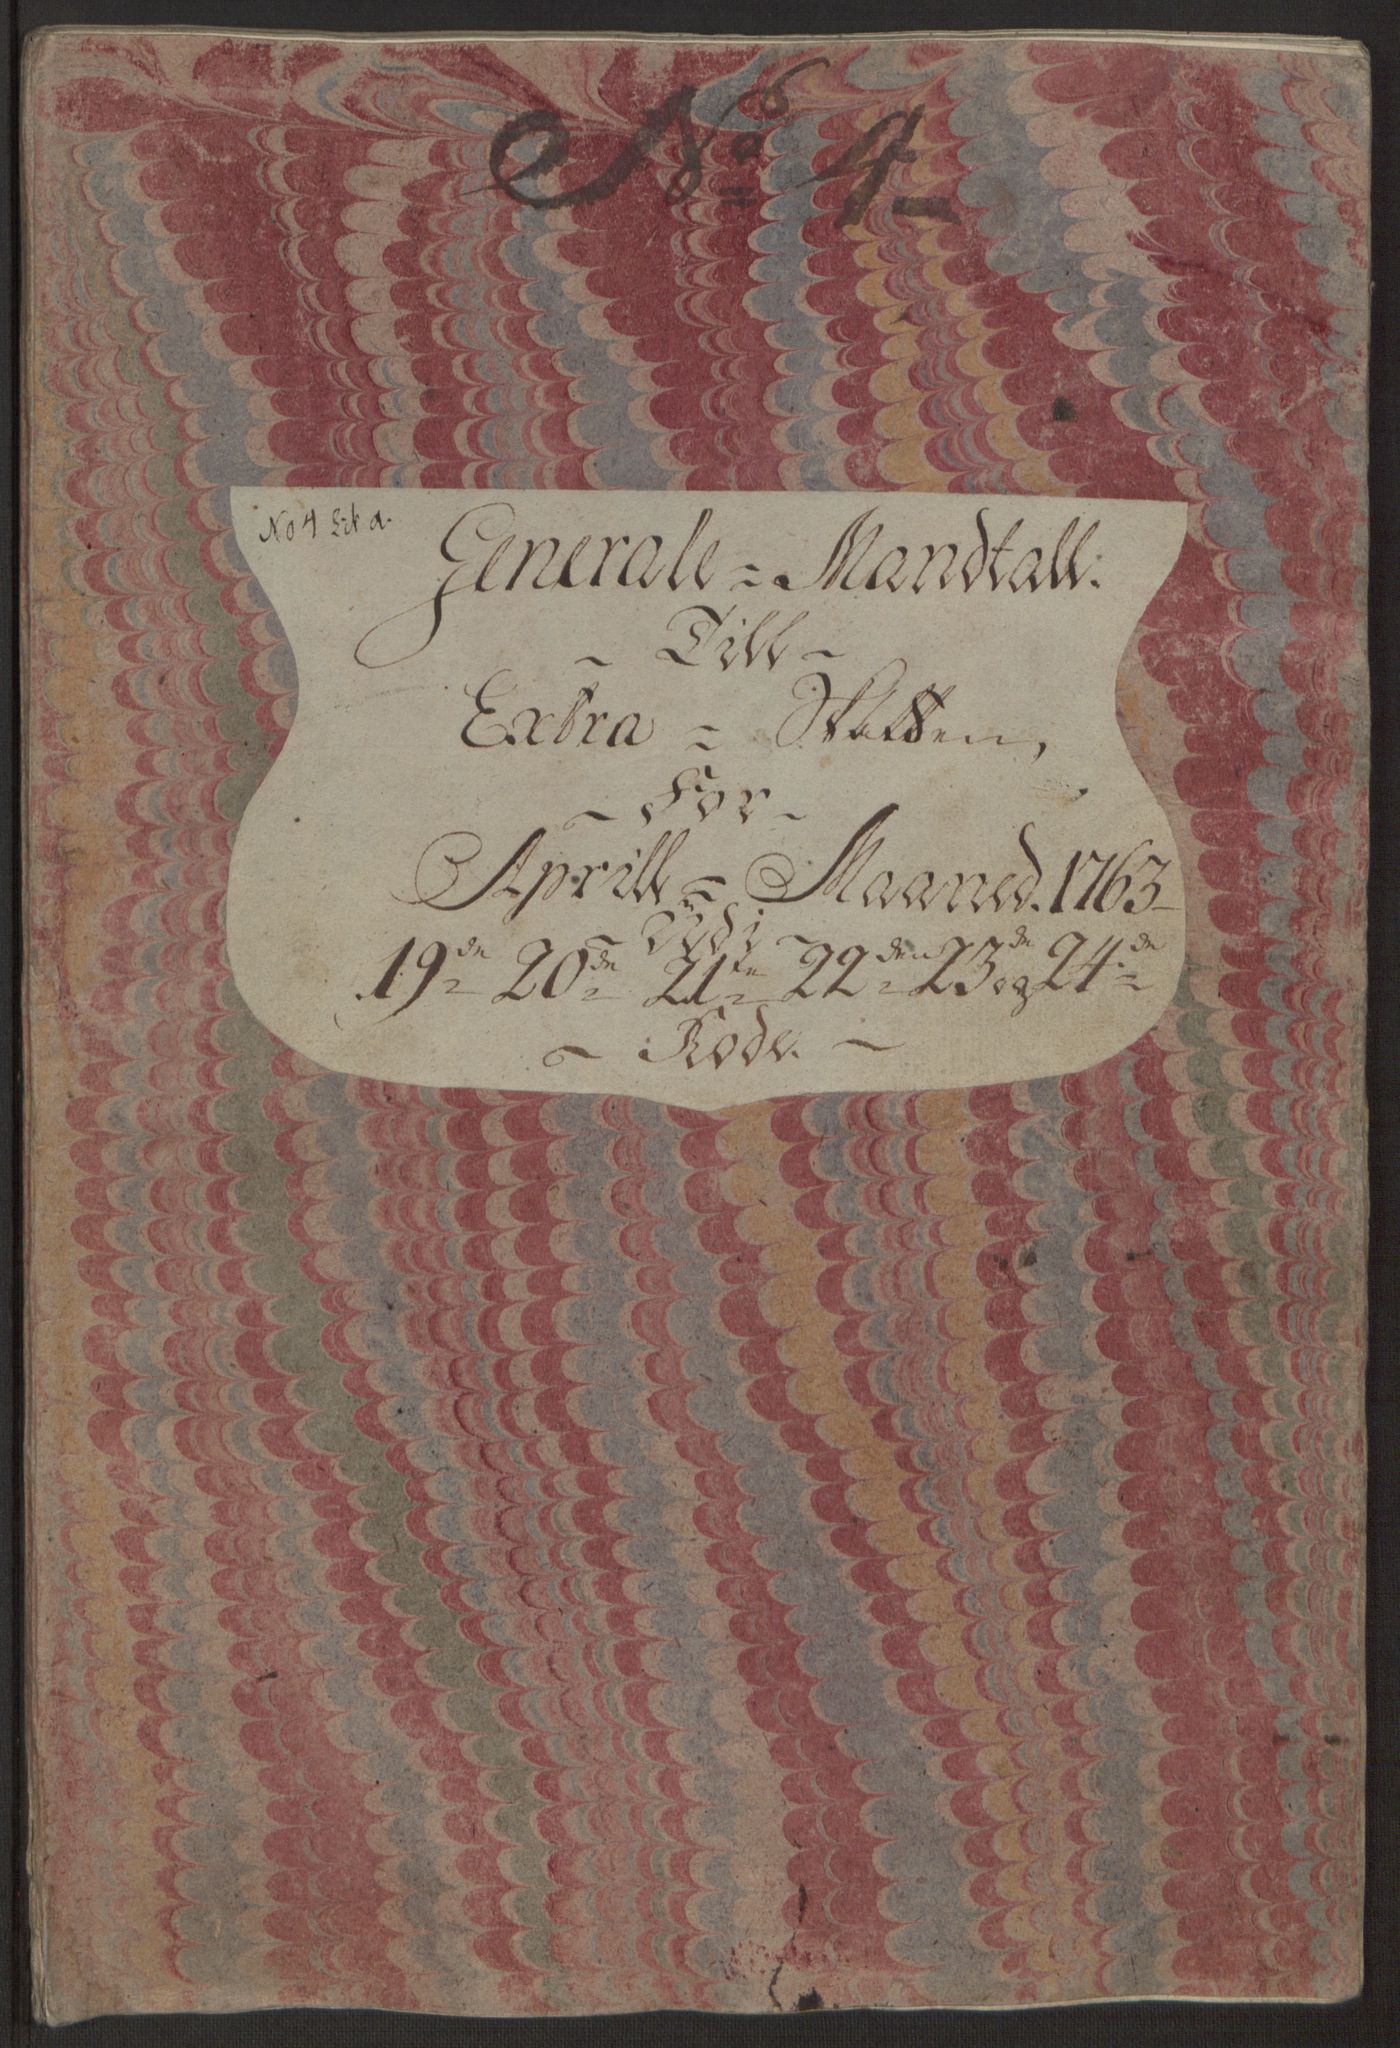 No 4
No 4 Lit a.
Generale = Mandtall.
~ Till ~
Extra = Skatten,
~ For ~
Aprill = Maaned. 1763
udi
19de 20de 21te 22den 23de og 24de
~ Rode. ~